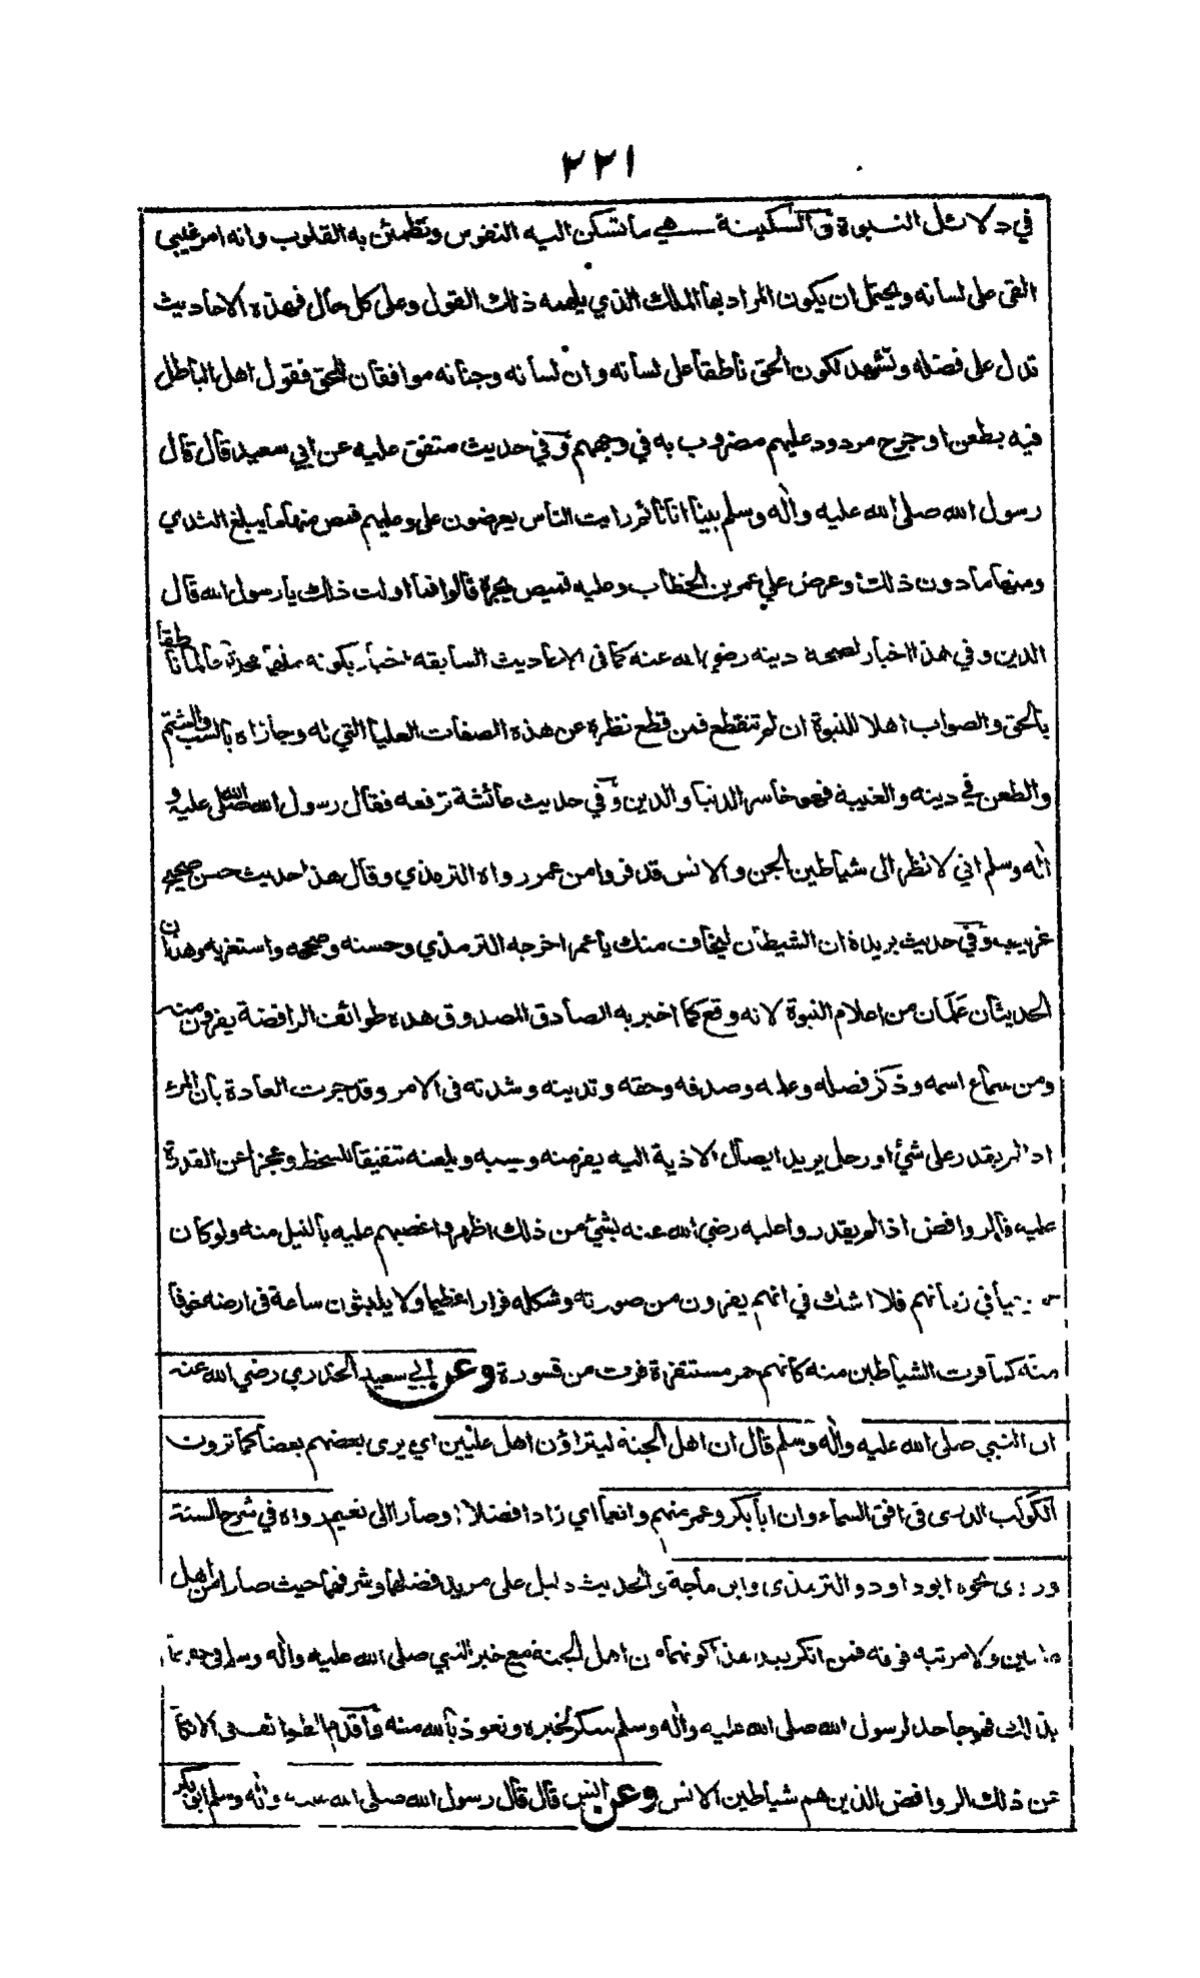 ٢٢١
في دلائل النبوة ق السكينة هي ما تسكن اليه النفوس وتطمئن به القلوب وانه امر غيبي
القى على لسانه ويحتمل ان يكون المراد بها الملك الذي يلهمه ذلك القول وعلى كل حال فهذه الاحاديث
تدل على فضله وتشهد لكون الحق ناطقا على لسانه وان لسانه وجنانه موافقان للحق فقول اهل الباطل
فيه بطعن او جرح مردود عليهم مضروب به في وجههم وفي حديث متفق عليه عن ابي سعيد قال قال
رسول الله صلى الله عليه واله وسلم بينا انا نائم رايت الناس يعرضون علي وعليهم قمص منها ما يبلغ الثدي
ومنها ما دون ذلك وعرض علي عمر بن الخطاب وعليه قميص يجره قالوا فما اولت ذلك يا رسول الله قال
الدين وفي هذا اخبار لصحة دينه رضي الله عنه كما في الاحاديث السابقه اخبار بكونه ملهما محدثا عالما ناطقا
بالحق والصواب اهلا للنبوة ان لم تنقطع فمن قطع نظره عن هذه الصفات العليا التي له وجازاه بالسب والشتم
والطعن في دينه والغيبة فهو خاسر الدنيا والدين وفي حديث عائشة ترفعه فقال رسول الله صلى الله عليه و
اله وسلم اني لانظر الى شياطين الجن والانس قد فروا من عمر رواه الترمذي وقال هذا حديث حسن صحيح
غريب وفي حديث بريدة ان الشيطان ليخاف منك يا عمر اخرجه الترمذي وحسنه وصححه واستغربه وهذان
الحديثان علمان من اعلام النبوة لانه وقع كما اخبر به الصادق المصدوق هذه طوائف الرافضة يفرون منه
ومن سماع اسمه وذكر فضله وعلمه وصدقه وحقه وتدينه وشدته في الامر وقد جرت العادة بان المرء
اذا لم يقدر على شئ او رجل يريد ايصال الاذية اليه يفر منه ويسبه ويلعنه تنفيقا للسخط وعجزا عن القدرة
عليه فالروافض اذا لم يقدروا عليه رضي الله عنه بشئ من ذلك اظهروا غضبهم عليه بالنيل منه ولو كان
في زمانهم فلا شك في انهم يفرون من صورته وشكله فرارا عظيما ولا يلبثون ساعة في ارضه خوفا
منه كما فرت الشياطين منه كانهم حمر مستنفرة فرت من قسورة وعن ابي سعيد الخدري رضي الله عنه
ان النبي صلى الله عليه واله وسلم قال ان اهل الجنة ليتراؤن اهل عليين اي يرى بعضهم بعضا كما ترون
الكوكب الدري في افق السماء وان ابا بكر وعمر منهم وانعما اي زادا فضلا وصارا الى نعيم رواه في شرح السنة
وروى نحوه ابو داود والترمذي وابن ماجة والحديث دليل على مزيد فضلهما وشرفهما حيث صارا من اهل
ولا مرتبه فوقه فمن انكر بعد هذا كونهما من اهل الجنة مع خبر النبي صلى الله عليه واله وسلم في حقهما
بذلك فهو جاحد لرسول الله صلى الله عليه واله وسلم منكر لخبره ونعوذ بالله منه واقدم الطوائف في الانكار
عن ذلك الروافض الذين هم شياطين الانس وعن انس قال قال رسول الله صلى الله عليه واله وسلم ابو بكر